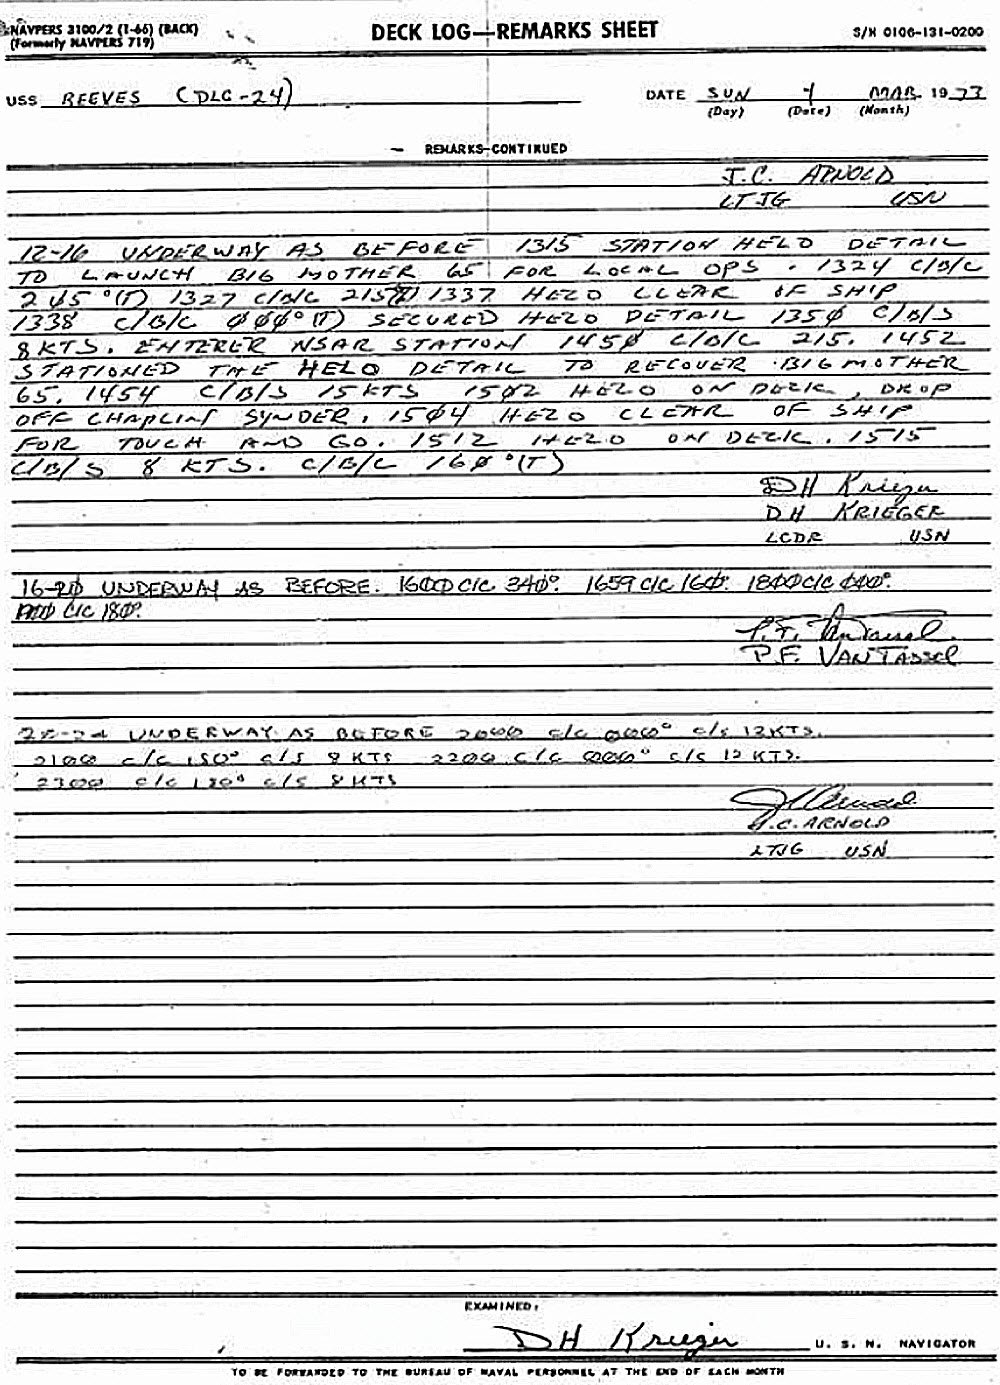 NAVPERS 3100/2 (1-66) (BACK)
(Formerly NAVPERS 719)
DECK LOG—REMARKS SHEET
S/N 0106-131-0200
USS REEVES (DLG-24)
DATE SUN 4 MAR 1973
(Day) (Date) (Month)
— REMARKS-CONTINUED
J.C. ARNOLD
LTJG USN
12-16 UNDERWAY AS BEFORE 1315 STATION HELO DETAIL
TO LAUNCH BIG MOTHER 65 FOR LOCAL OPS. 1324 C/B/C
°(T) 1327 C/B/C 1337 HELO CLEAR OF SHIP
1338 C/B/C ØØØ°(T) SECURED HELO DETAIL 135Ø C/B/S
8KTS. ENTERER NSAR STATION 145Ø C/B/C 215. 1452
STATIONED THE HELO DETAIL TO RECOVER BIG MOTHER
65. 1454 C/B/S 15KTS 15Ø2 HELO ON DECK, DROP
OFF CHAPLIN SYNDER. 15Ø4 HELO CLEAR OF SHIP
FOR TOUCH AND GO. 1512 HELO ON DECK. 1515
C/B/S 8 KTS. C/B/C 16Ø°(T)
DH Krieger
DH KRIEGER
LCDR USN
16-2Ø UNDERWAY AS BEFORE. 16ØØ C/C 34Ø°. 1659 C/C 16Ø°. 18ØØ C/C
C/C 18Ø°.
P.F. VanTassel
P.F. VANTASSEL
UNDERWAY AS BEFORE 2ØØØ c/c ØØØ° c/s 12KTS.
21ØØ c/c 18Ø° c/s 8 KTS 22ØØ c/c ØØØ° c/s 12 KTS.
23ØØ c/c 18Ø° c/s 8 KTS
JC Arnold
J.C. ARNOLD
LTJG USN
EXAMINED:
DH Krieger U. S. N. NAVIGATOR
TO BE FORWARDED TO THE BUREAU OF NAVAL PERSONNEL AT THE END OF EACH MONTH